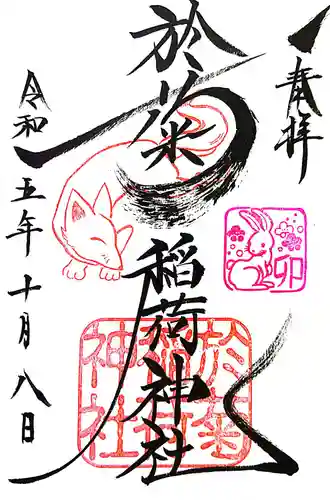 奉拝
於菊稲荷神社
令和五年十月八日
卯
於菊稲荷神社